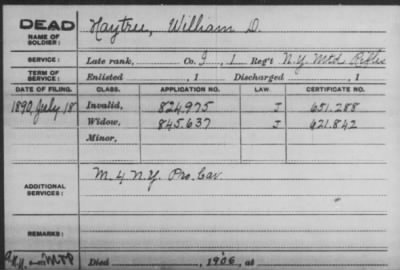 DEAD Haytree, William D.
NAME OF SOLDIER:
SERVICE: Late rank, Co. I, 1 Reg't N.Y. Mtd Rifles
TERM OF SERVICE: Enlisted , 1 Discharged , 1
DATE OF FILING. CLASS. APPLICATION NO. LAW. CERTIFICATE NO.
1890, July 18 Invalid, 824.975 J 651.288
Widow, 845.637 J 621.842
Minor,
ADDITIONAL SERVICES: M. 4 N.Y. Pro. Cav.
REMARKS:
Died , 1906, at